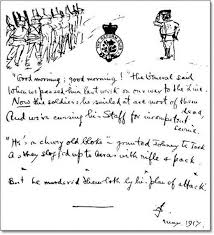 "Good morning; good morning!" the General said
When we passed him last week on our way to the Line.
Now the soldiers he smiled at are most of them dead,
And we're cursing his Staff for incompetent
swine.
"He's a cheery old bloke" grunted Johnny to Jack
As they slogged up to Arras with rifle & pack.
But he murdered them both by his plan of attack.
1917.